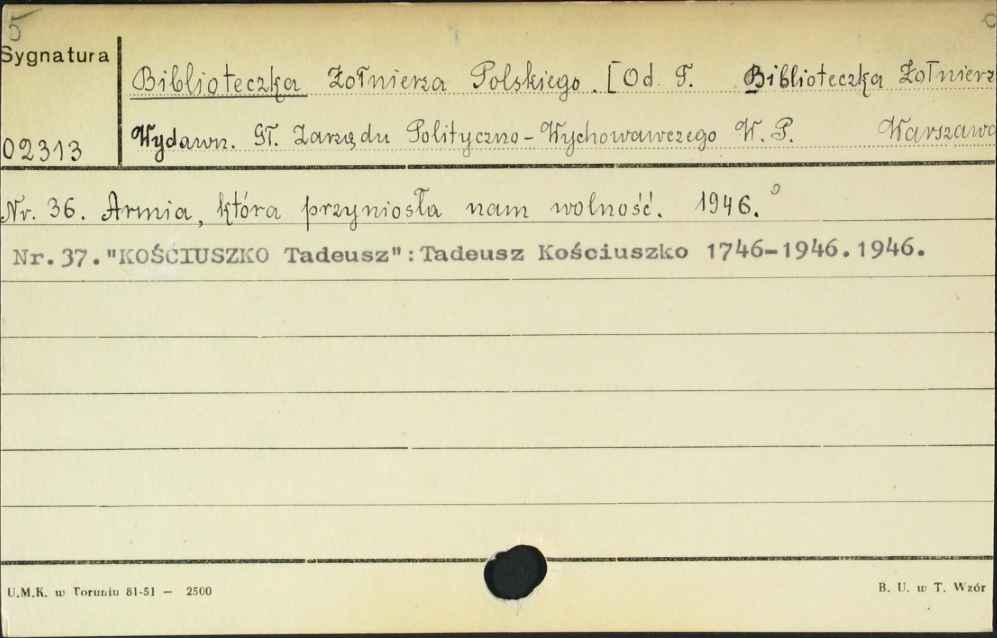 5
Sygnatura
Biblioteczka Żołnierza Polskiego. [Od T. Biblioteczka Żołnierz
Wydawn. Gł. Zarządu Polityczno-Wychowawczego W.P. Warszawa
02313
Nr. 36. Armia, która przyniosła nam wolność. 1946.
Nr.37."KOŚCIUSZKO Tadeusz":Tadeusz Kościuszko 1746-1946.1946.
U.M.K. w Toruniu 81-51 — 2500
B. U. w T. Wzór